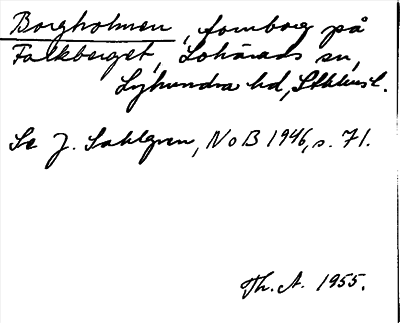 Borgholmen, fornborg på
Falkberget, Lohärads sn,
Lyhundra hd, Sthlms l.
Se J. Sahlgren, NoB 1946, s. 71.
Th. A. 1955.